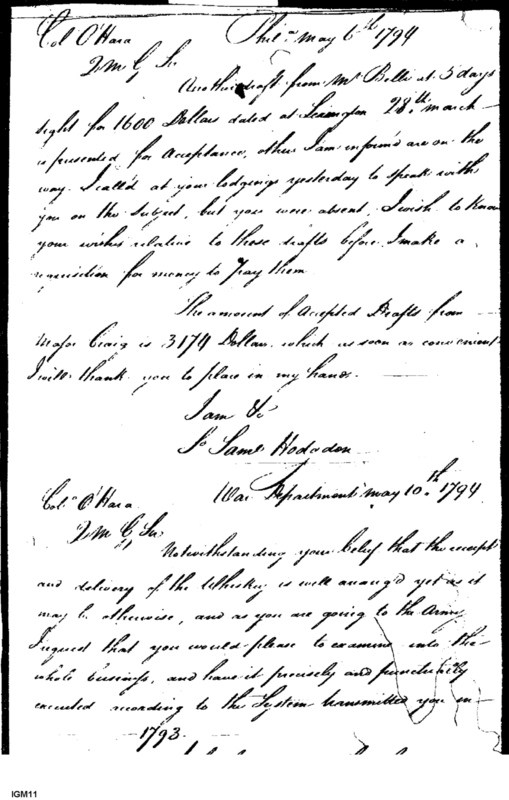 Col O'Hara Phila May 6th 1794
Q M G Sir
Another draft from Mr Belli at 5 days
sight for 1600 Dollars dated at Lexington 28th March
is presented for Acceptance, others I am inform'd are on the
way. I call'd at your lodgings yesterday to speak with
you on the subject, but you were absent. I wish to know
your wishes relative to those drafts before I make a
requisition for money to pay them
The amount of Accepted Drafts from
Major Craig is 3174 Dollars which as soon as convenient
I will thank you to place in my hands.
I am &c
Saml Hodgdon
Col. O'Hara War Department May 10th 1794
Q M G Sir
Notwithstanding your belief that the receipt
and delivery of the Whiskey is well arrang'd yet as it
may be otherwise, and as you are going to the Army
I request that you would please to examine into the
whole business, and have it precisely and punctually
executed according to the System transmitted you in
1793.
IGM11